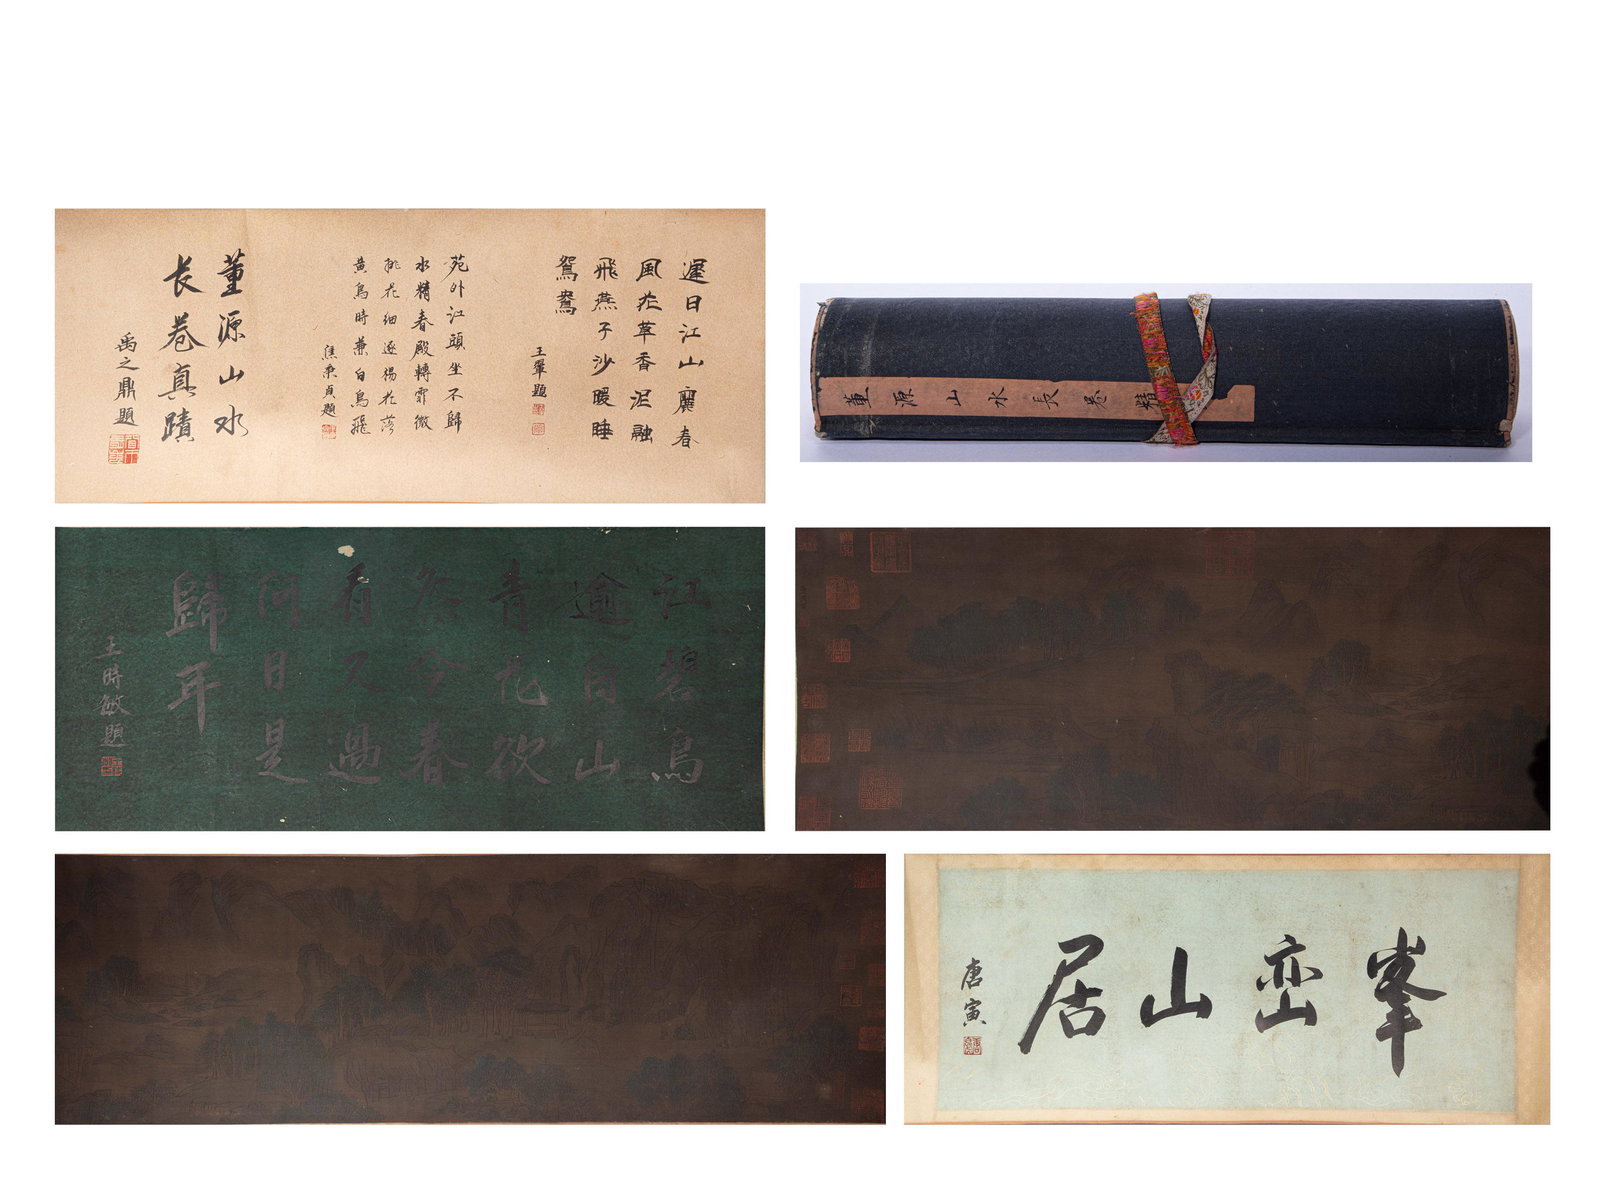 遲日江山麗春
風花草香泥融
飛燕子沙暖睡
鴛鴦
王翬題
苑外江頭坐不歸
水精春殿轉霏微
桃花細逐楊花落
黃鳥時兼白鳥飛
焦秉貞題
董源山水
长卷真蹟
禹之鼎題
董源山水長卷精
江碧鳥
逾白山
青花欲
然今春
看又過
何日是
歸年
王時敏題
峯峦山居
唐寅